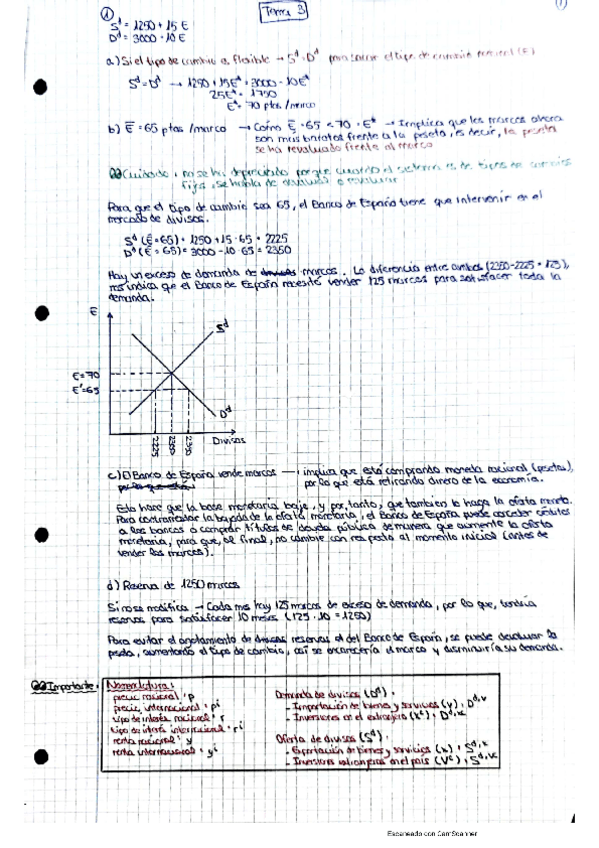 Tema 3
①
1)
S^d = 1250 + 15 E
D^d = 3000 - 10 E
a) Si el tipo de cambio es flexible → S^d = D^d para sacar el tipo de cambio (E)
S^d = D^d → 1250 + 15E* = 3000 - 10E*
25E* = 1750
E* = 70 ptas/marco
b) E̅ = 65 ptas/marco → Como E̅ = 65 < 70 = E* → Implica que los marcos ahora
son más baratos frente a la peseta, es decir, la peseta
se ha revaluado frente al marco
Cuidado: no se ha depreciado porque cuando el sistema es de tipos de cambios
fijos, se habla de devaluar o revaluar
Para que el tipo de cambio sea 65, el Banco de España tiene que intervenir en el
mercado de divisas.
S^d (E̅=65) = 1250 + 15 · 65 = 2225
D^d (E̅=65) = 3000 - 10 · 65 = 2350
Hay un exceso de demanda de marcos. La diferencia entre ambos (2350-2225 = 125),
nos indica que el Banco de España necesita vender 125 marcos para satisfacer toda la
demanda.
E
S^d
E=70
E'=65
D^d
2225
2350
Divisas
c) El Banco de España vende marcos → implica que está comprando moneda nacional (pesetas),
por lo que está retirando dinero de la economía.
Esto hace que la base monetaria baje, y por tanto, que también lo haga la oferta moneta.
Para contrarrestar la bajada de la oferta monetaria, el Banco de España puede conceder créditos
a los bancos o comprar títulos de deuda pública de manera que aumente la oferta
monetaria, para que, al final, no cambie con respecto al momento inicial (antes de
vender los marcos).
d) Reserva de 1250 marcos
Si no se modifica → Cada mes hay 125 marcos de exceso de demanda, por lo que, tendría
reservas para satisfacer 10 meses (125 · 10 = 1250)
Para evitar el agotamiento de reservas el del Banco de España, se puede devaluar la
peseta, aumentando el tipo de cambio, así se encarecería el marco y disminuiría su demanda.
Importante:
Nomenclatura:
precio nacional: p
precio internacional: p^i
tipo de interés nacional: r
tipo de interés internacional: r^i
renta nacional: y
renta internacional: y^i
Demanda de divisas (D^d):
- Importación de bienes y servicios
- Inversiones en el extranjero
Oferta de divisas (S^d):
- Exportación de bienes y servicios (x): S^d,x
- Inversiones extranjeras en el país
Escaneado con CamScanner